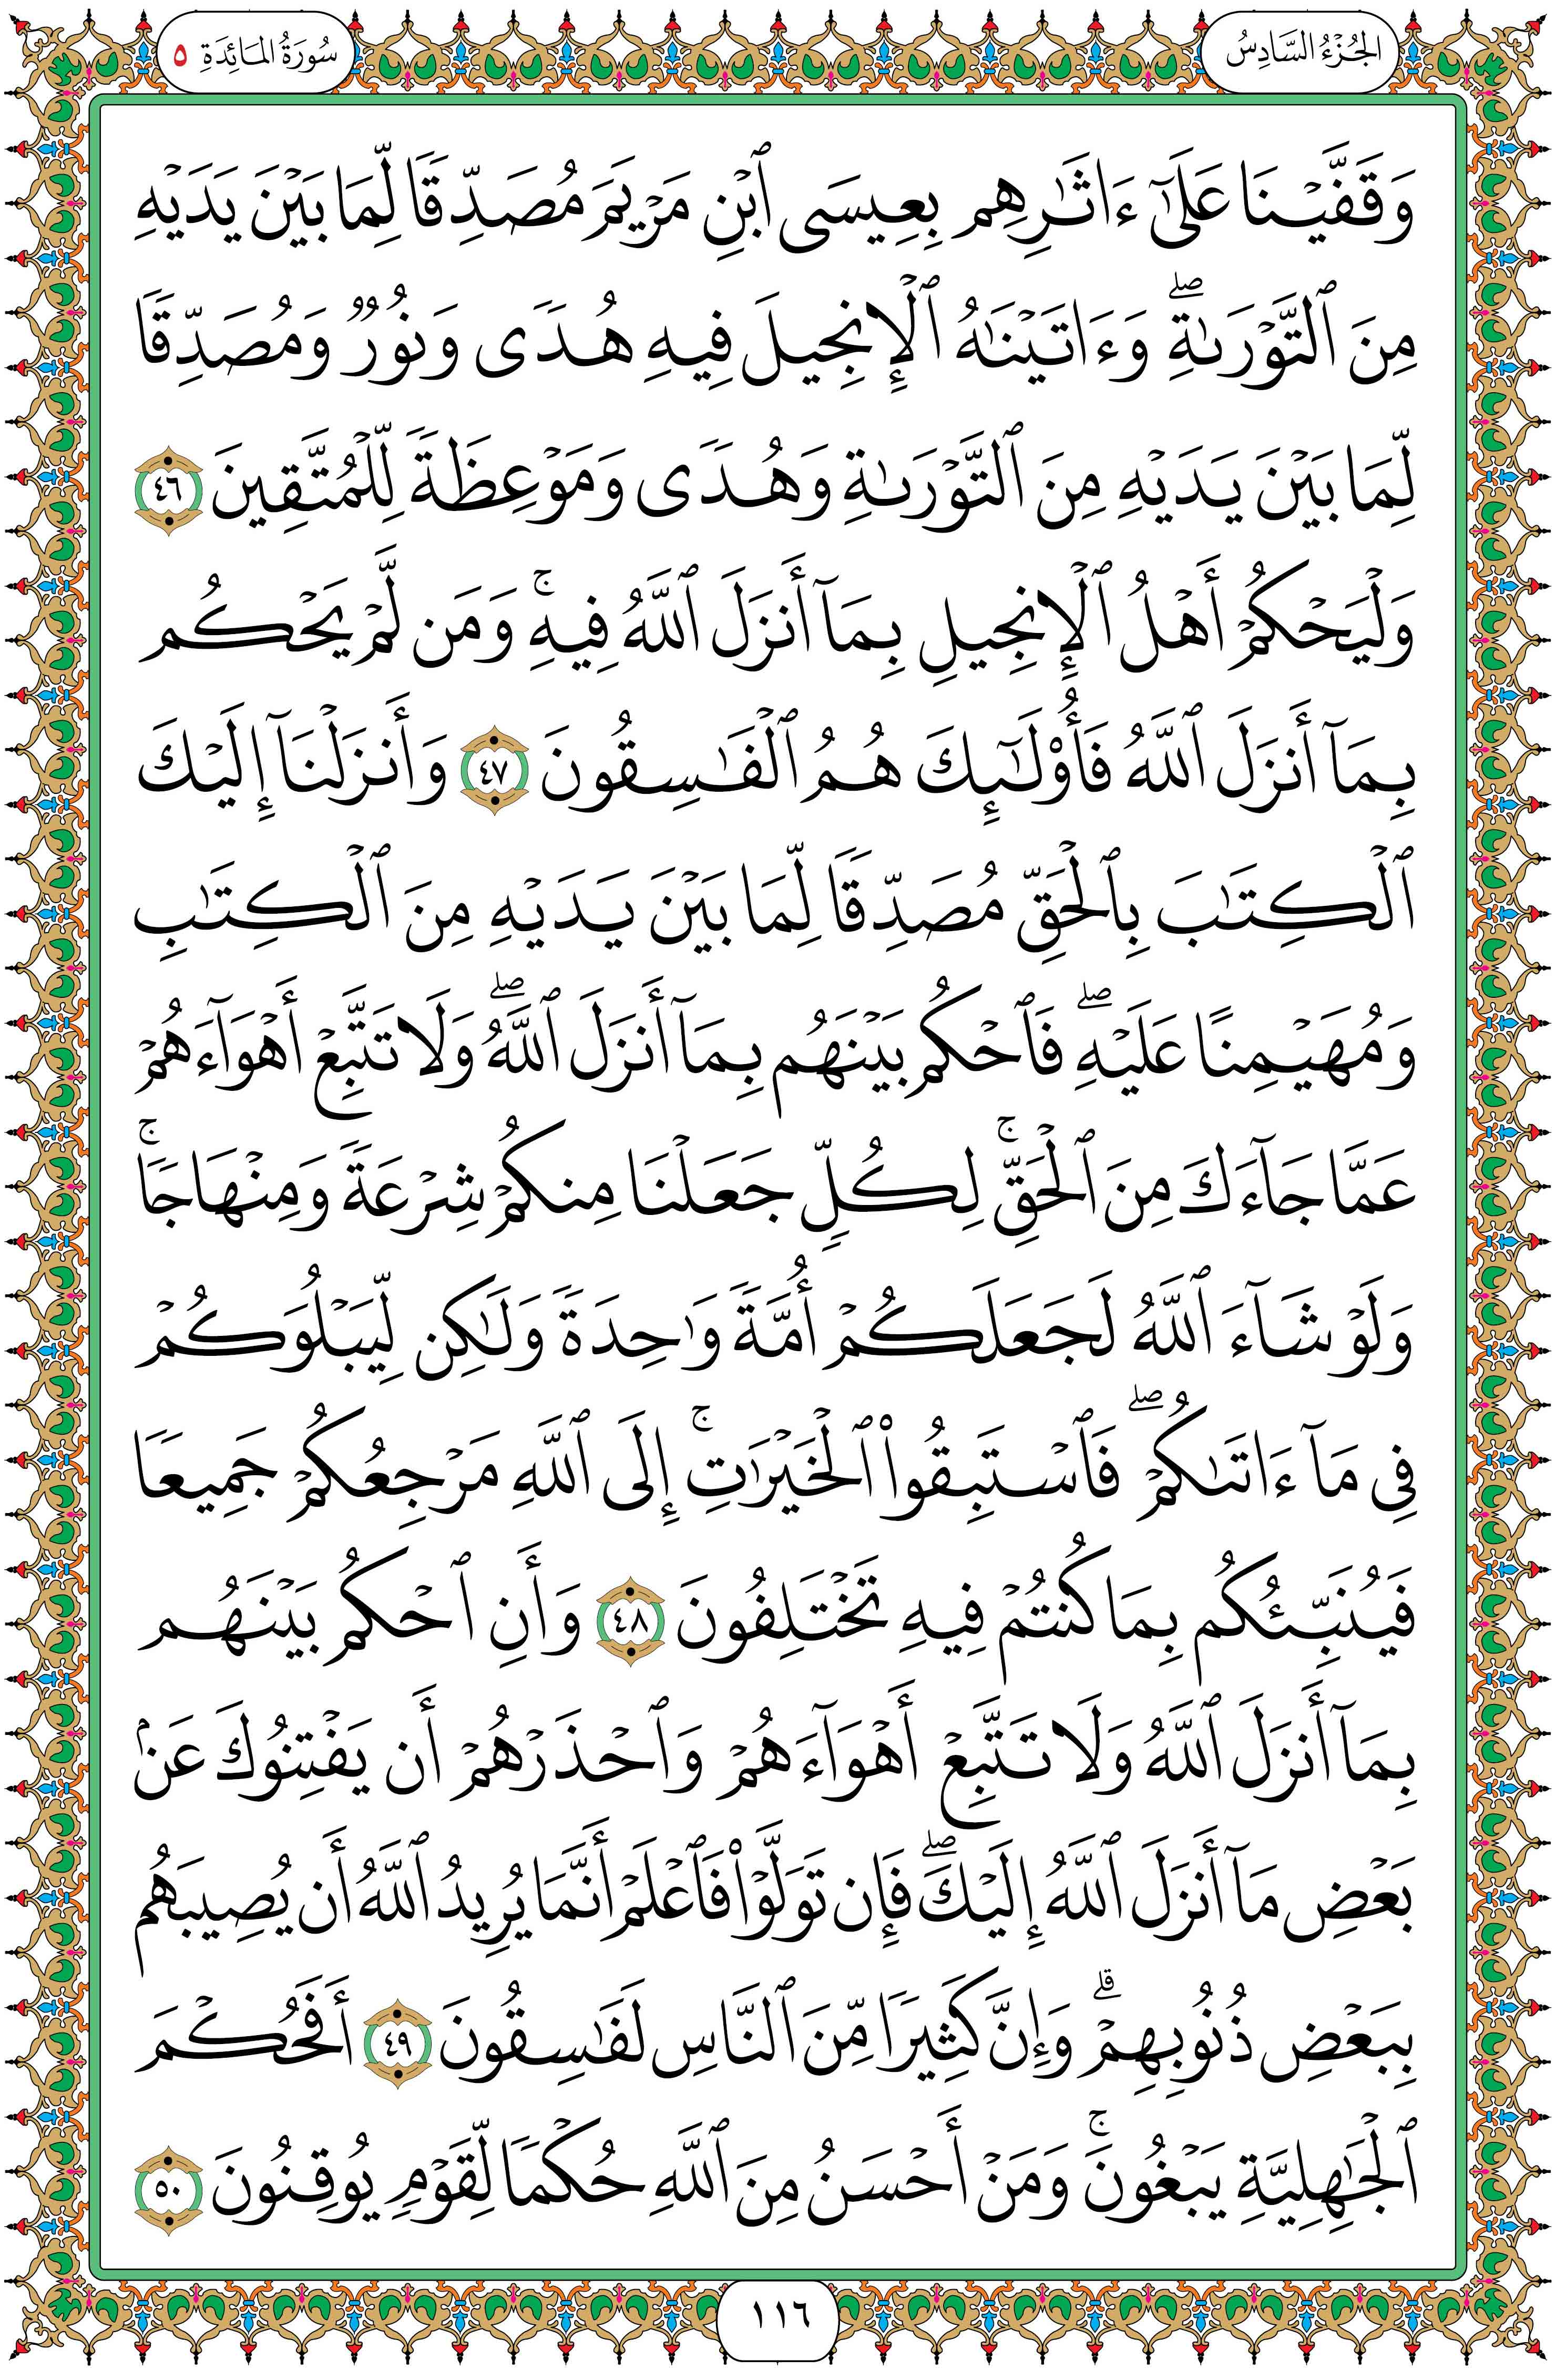 الجُزْءُ السَّادِسُ
سُورَةُ المَائِدَةِ ٥
وَقَفَّيْنَا عَلَىٰٓ ءَاثَٰرِهِم بِعِيسَى ٱبْنِ مَرْيَمَ مُصَدِّقًا لِّمَا بَيْنَ يَدَيْهِ
مِنَ ٱلتَّوْرَىٰةِۖ وَءَاتَيْنَٰهُ ٱلْإِنجِيلَ فِيهِ هُدًى وَنُورٌ وَمُصَدِّقًا
لِّمَا بَيْنَ يَدَيْهِ مِنَ ٱلتَّوْرَىٰةِ وَهُدًى وَمَوْعِظَةً لِّلْمُتَّقِينَ ٤٦
وَلْيَحْكُمْ أَهْلُ ٱلْإِنجِيلِ بِمَآ أَنزَلَ ٱللَّهُ فِيهِۚ وَمَن لَّمْ يَحْكُم
بِمَآ أَنزَلَ ٱللَّهُ فَأُو۟لَٰٓئِكَ هُمُ ٱلْفَٰسِقُونَ ٤٧ وَأَنزَلْنَآ إِلَيْكَ
ٱلْكِتَٰبَ بِٱلْحَقِّ مُصَدِّقًا لِّمَا بَيْنَ يَدَيْهِ مِنَ ٱلْكِتَٰبِ
وَمُهَيْمِنًا عَلَيْهِۖ فَٱحْكُم بَيْنَهُم بِمَآ أَنزَلَ ٱللَّهُۖ وَلَا تَتَّبِعْ أَهْوَآءَهُمْ
عَمَّا جَآءَكَ مِنَ ٱلْحَقِّۚ لِكُلٍّ جَعَلْنَا مِنكُمْ شِرْعَةً وَمِنْهَاجًاۚ
وَلَوْ شَآءَ ٱللَّهُ لَجَعَلَكُمْ أُمَّةً وَٰحِدَةً وَلَٰكِن لِّيَبْلُوَكُمْ
فِى مَآ ءَاتَىٰكُمْۖ فَٱسْتَبِقُوا۟ ٱلْخَيْرَٰتِۚ إِلَى ٱللَّهِ مَرْجِعُكُمْ جَمِيعًا
فَيُنَبِّئُكُم بِمَا كُنتُمْ فِيهِ تَخْتَلِفُونَ ٤٨ وَأَنِ ٱحْكُم بَيْنَهُم
بِمَآ أَنزَلَ ٱللَّهُ وَلَا تَتَّبِعْ أَهْوَآءَهُمْ وَٱحْذَرْهُمْ أَن يَفْتِنُوكَ عَنۢ
بَعْضِ مَآ أَنزَلَ ٱللَّهُ إِلَيْكَۖ فَإِن تَوَلَّوْا۟ فَٱعْلَمْ أَنَّمَا يُرِيدُ ٱللَّهُ أَن يُصِيبَهُم
بِبَعْضِ ذُنُوبِهِمْۗ وَإِنَّ كَثِيرًا مِّنَ ٱلنَّاسِ لَفَٰسِقُونَ ٤٩ أَفَحُكْمَ
ٱلْجَٰهِلِيَّةِ يَبْغُونَۚ وَمَنْ أَحْسَنُ مِنَ ٱللَّهِ حُكْمًا لِّقَوْمٍ يُوقِنُونَ ٥٠
١١٦